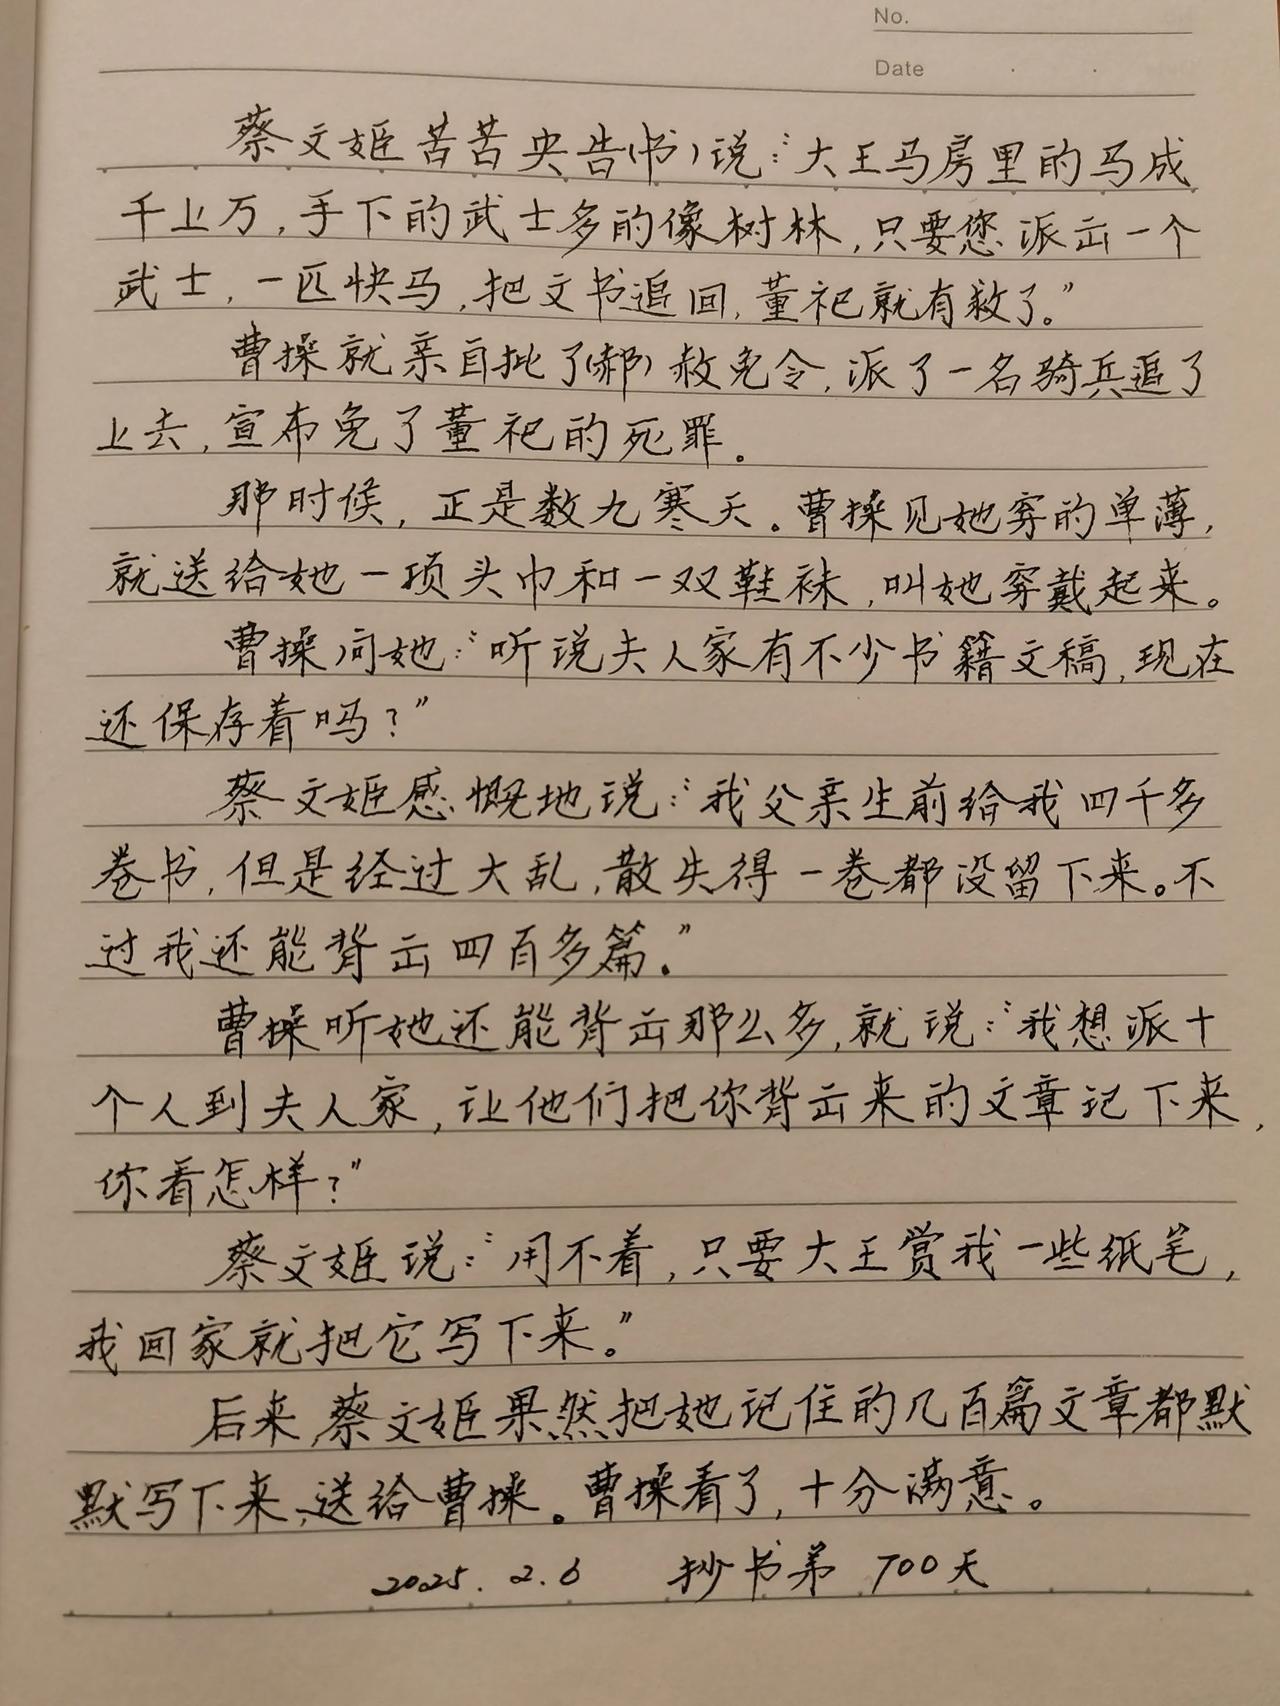 No.
Date
蔡文姬苦苦央告(书)说:“大王马房里的马成
千上万,手下的武士多的像树林,只要您派出一个
武士,一匹快马,把文书追回,董祀就有救了。”
曹操就亲自批了(郝)赦免令,派了一名骑兵追了
上去,宣布免了董祀的死罪。
那时候,正是数九寒天。曹操见她穿的单薄,
就送给她一顶头巾和一双鞋袜,叫她穿戴起来。
曹操问她:“听说夫人家有不少书籍文稿,现在
还保存着吗?”
蔡文姬感慨地说:“我父亲生前给我四千多
卷书,但是经过大乱,散失得一卷都没留下来。不
过我还能背出四百多篇。”
曹操听她还能背出那么多,就说:“我想派十
个人到夫人家,让他们把你背出来的文章记下来,
你看怎样?”
蔡文姬说:“用不着,只要大王赏我一些纸笔,
我回家就把它写下来。”
后来,蔡文姬果然把她记住的几百篇文章都默
默写下来,送给曹操。曹操看了,十分满意。
2025.2.6 抄书第700天